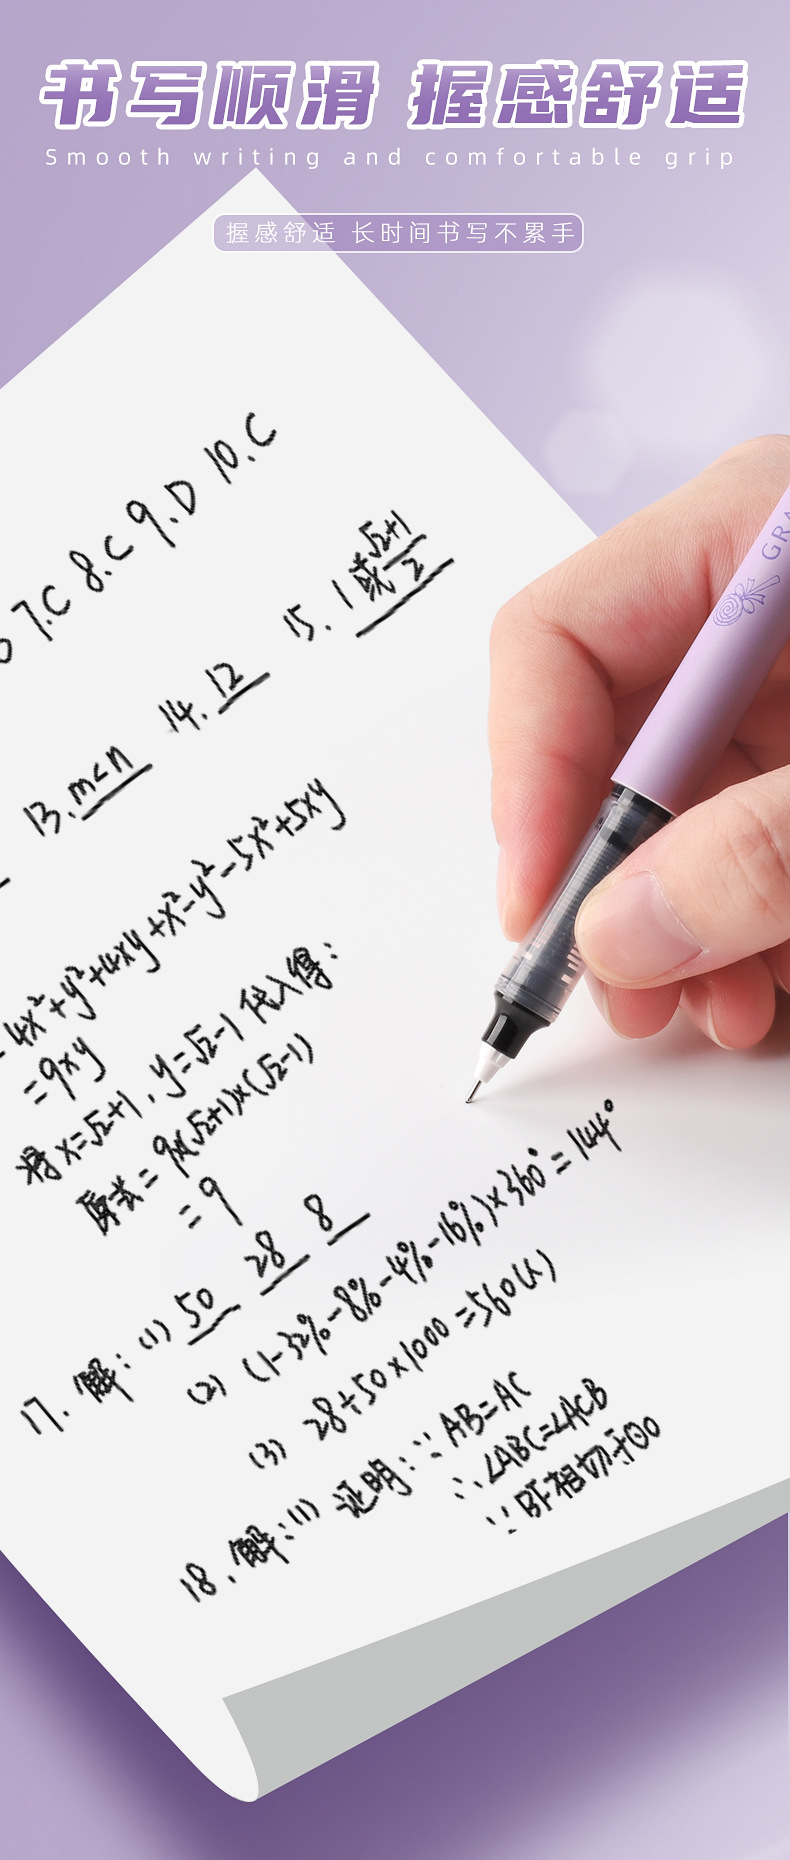 书写顺滑 握感舒适
Smooth writing and comfortable grip
握感舒适 长时间书写不累手
7.C 8.C 9.D 10.C
13. m<n 14. 12 15. 1或(√2+1)/2
GRA
4x²+y²+4xy+x²-y²-5x²+5xy
=9xy
将x=√2+1,y=√2-1代入得:
原式=9×(√2+1)×(√2-1)
=9
17. 解:(1) 50 28 8
(2) (1-32%-8%-4%-16%)×360°=144°
(3) 28÷50×1000=560(人)
18. 解:(1) 证明:∵AB=AC
∴∠ABC=∠ACB
∵BF相切于⊙O